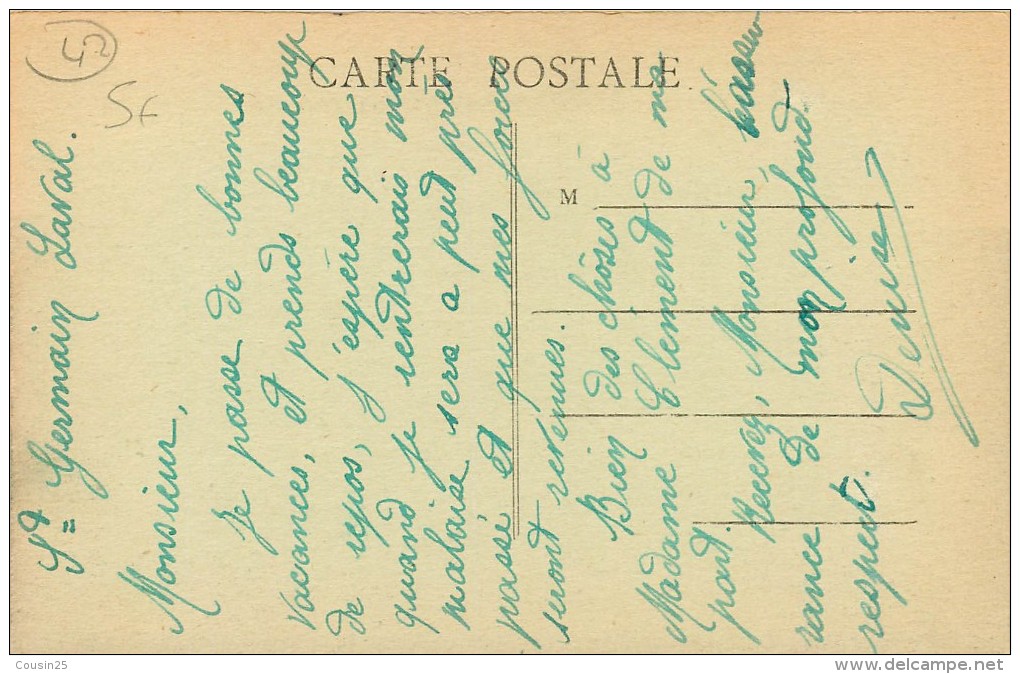 42
St
CARTE POSTALE
M
St Germain Laval.
Monsieur,
Je passe de bonnes
vacances, et prends beaucoup
de repos, J'éspère que
quand je rentrerais mon
malaise sera a peut près
passé et que mes forces
seront revenues.
Bien des chôses à
Madame Clement de ma
part.
Recevez, Monsieur, l'assu-
rance de mon profond
respect.
Denise
Cousin25
www.delcampe.net